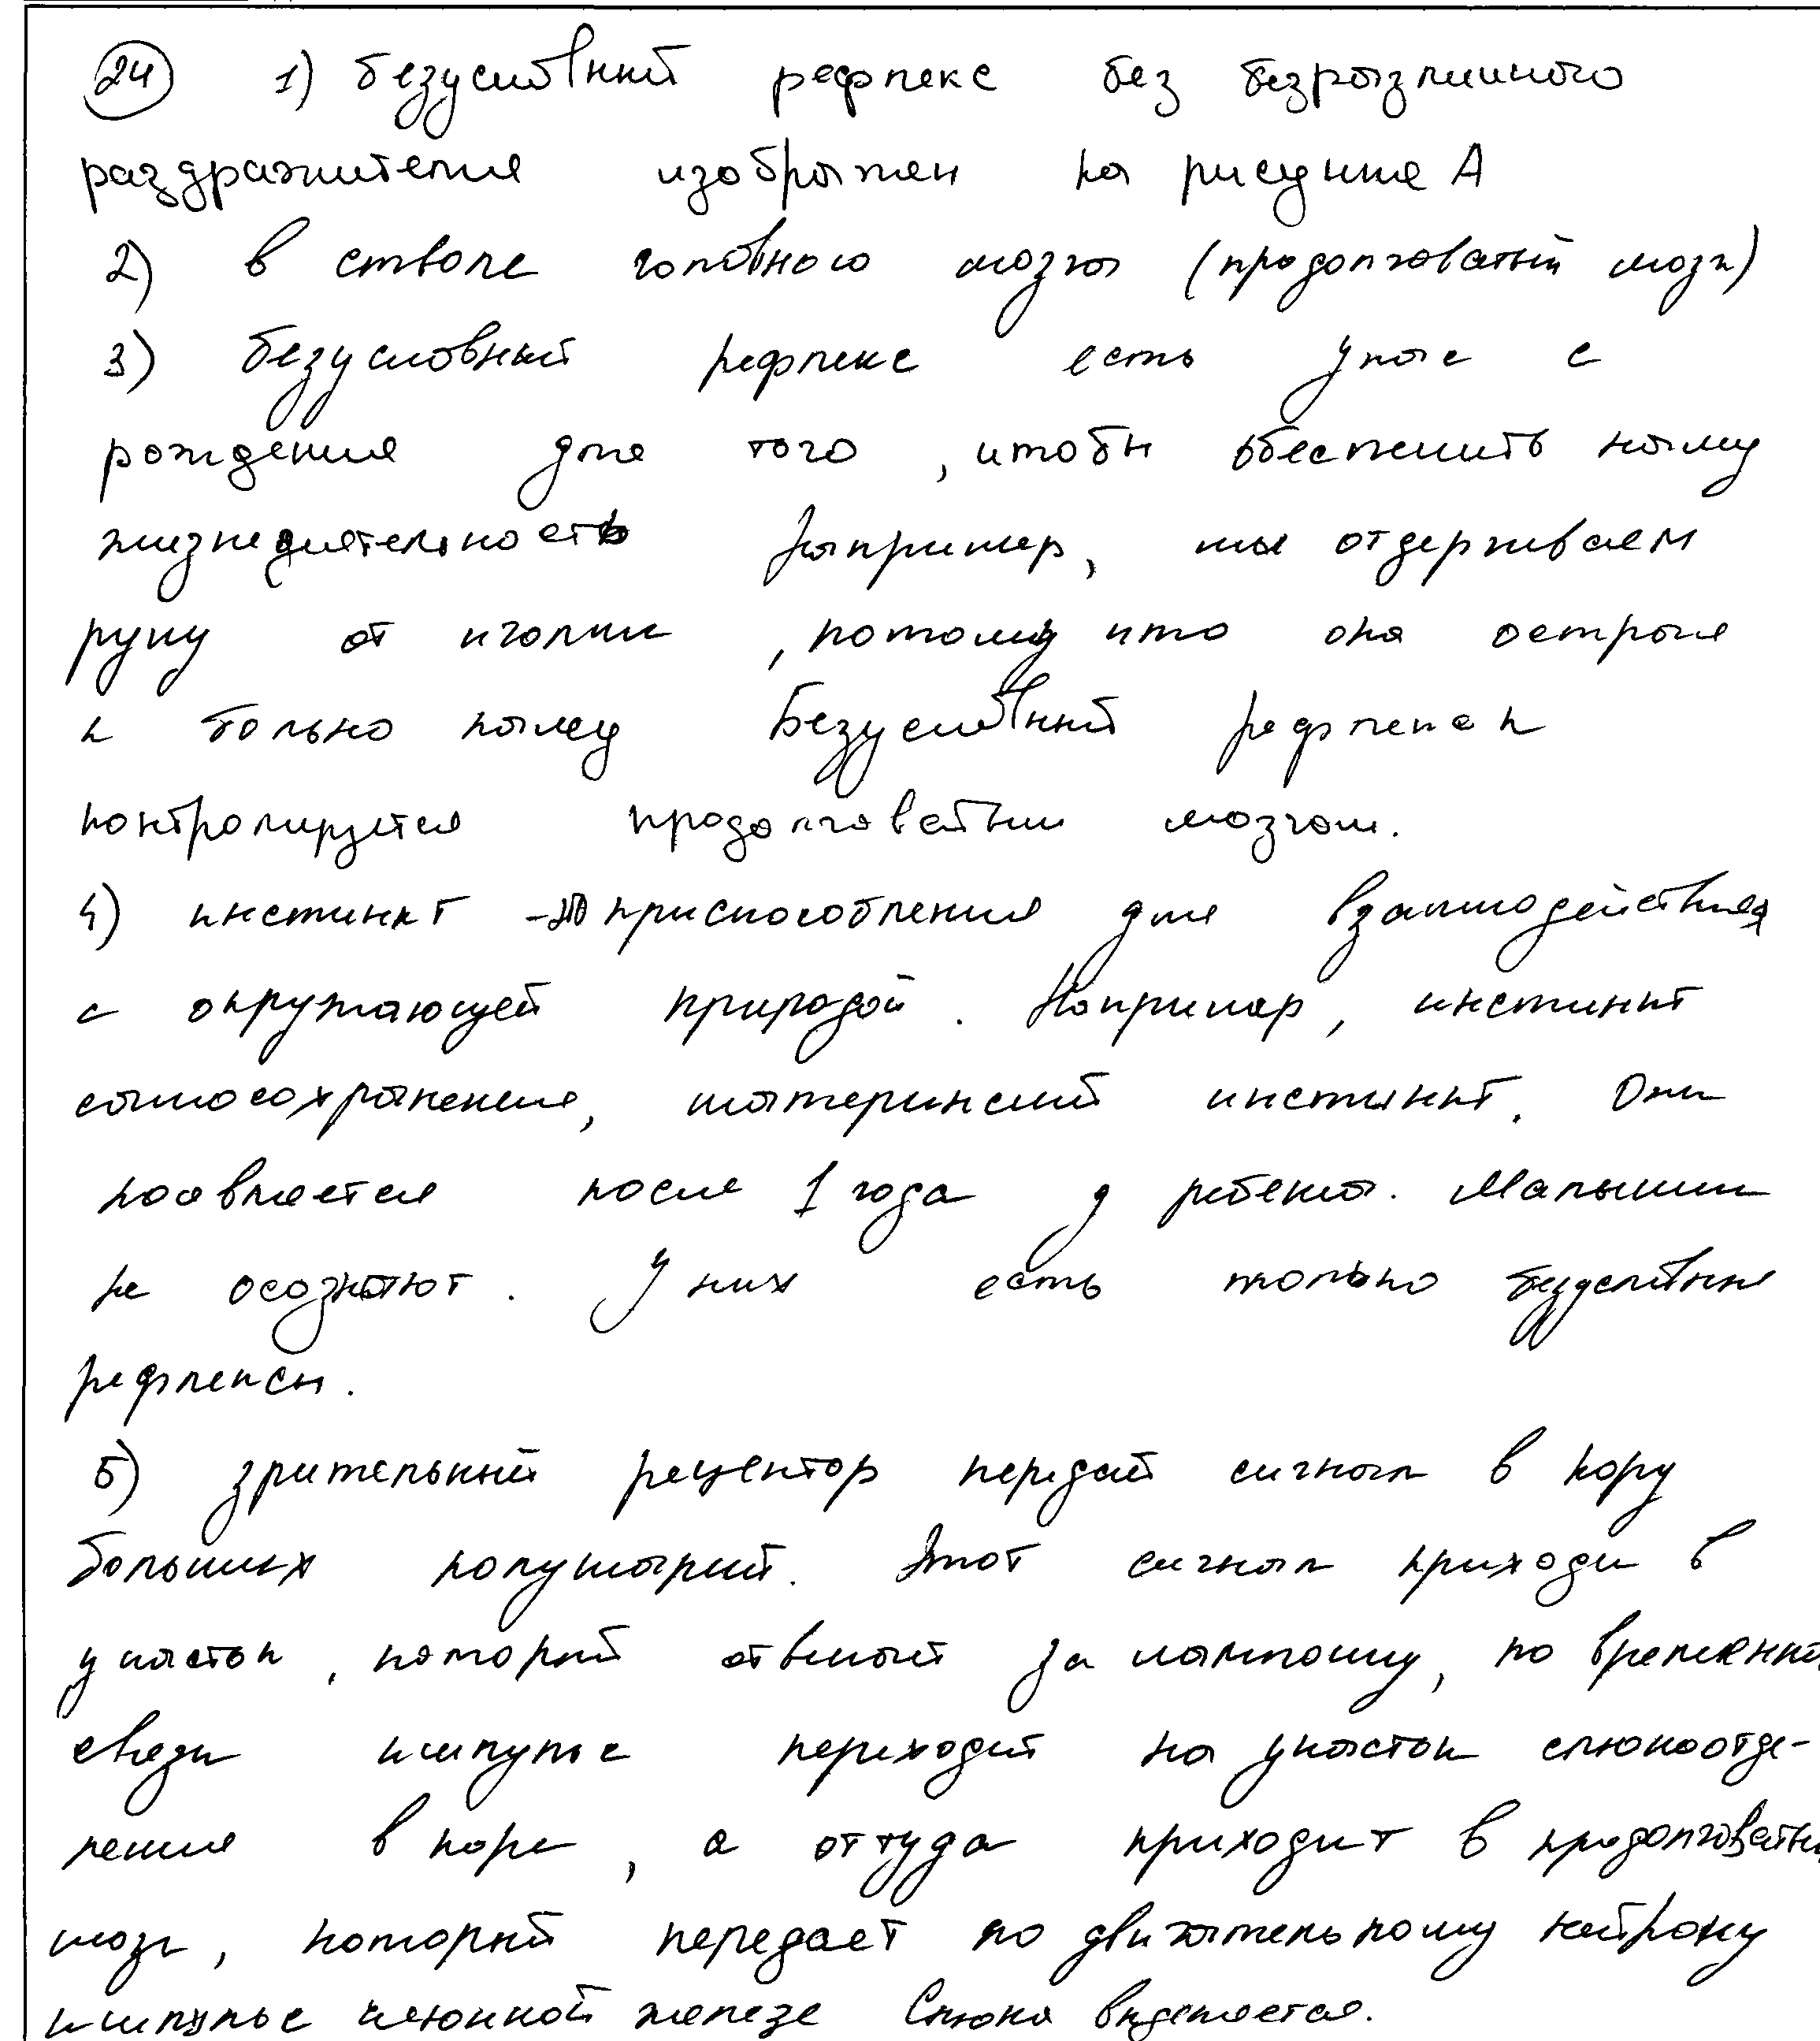 24 1) безусловный рефлекс без безразличного
раздражителя изображен на рисунке А
2) в стволе головного мозга (продолговатый мозг)
3) безусловный рефлекс есть у нас с
рождения для того, чтобы обеспечить нашу
жизнедеятельность Например, мы отдергиваем
руку от иголки, потому что она острая
и только
Безусловный рефлекс
контролируется продолговатым мозгом.
4) инстинкт - приспособления для взаимодействия
с окружающей природой. Например, инстинкт
самосохранения, материнский инстинкт. Они
появляется после 1 года у ребенка. Малыши
не осознают. У них есть только безусловные
рефлексы.
5) зрительный рецептор передаёт сигнал в кору
больших полушарий. Этот сигнал приходи в
участок, который отвечает за лампочку, по временной
связи импульс переходит на участок слюноотде-
ления в коре, а оттуда приходит в продолговатый
мозг, который передает по двигательному нейрону
импульс слюнной железе Слюна выделяется.